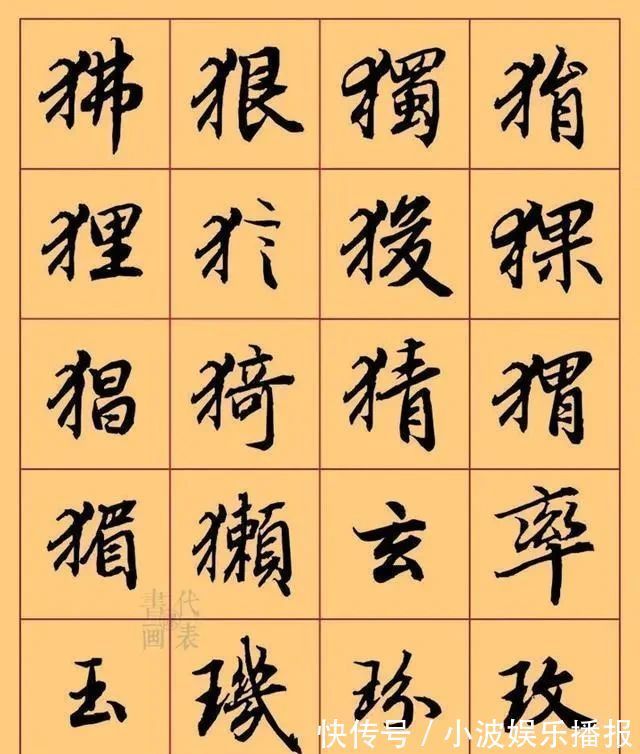 狒 狠 獨 猾
狸 犷 猣 猓
猖 猗 猜 猬
猸 獺 玄 率
玉 璣 玢 玫
書画 代表
快传号 / 小波娱乐播报